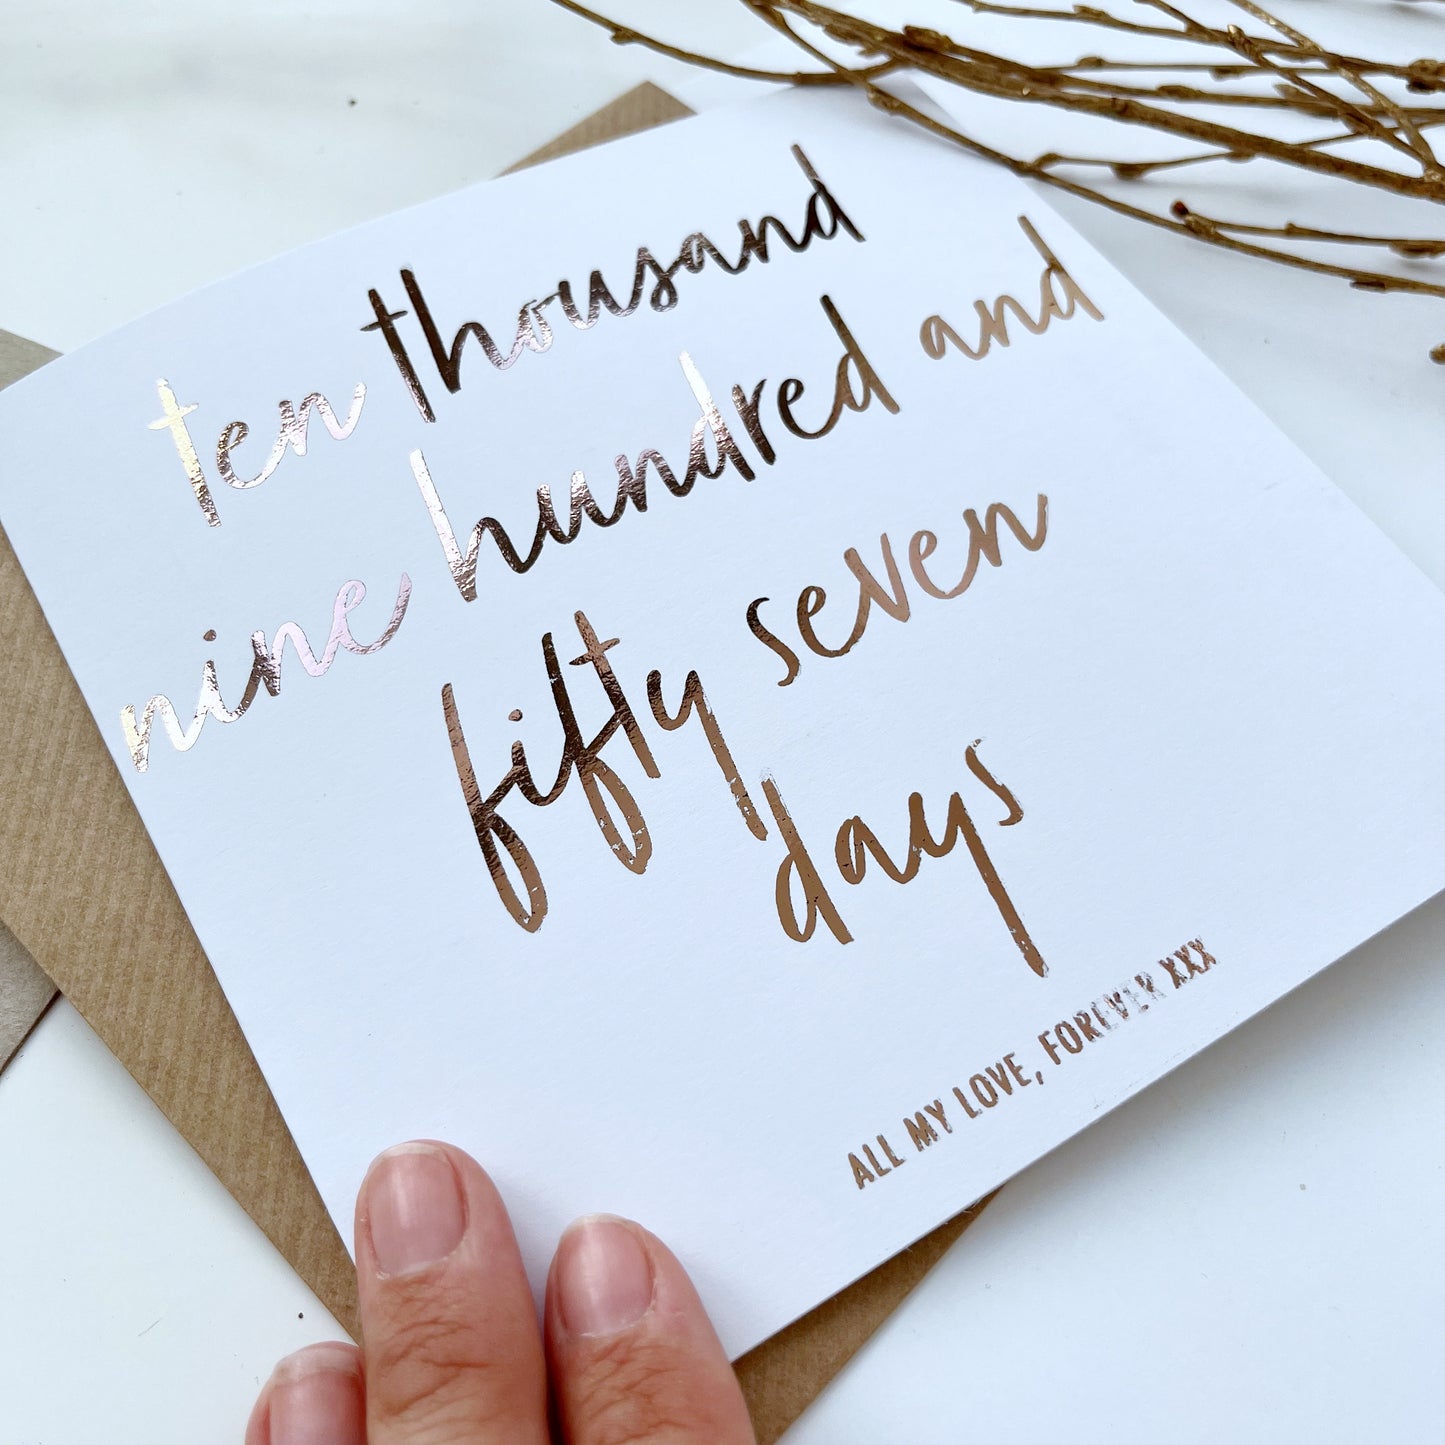 ten thousand
nine hundred and
fifty seven
days
ALL MY LOVE, FOREVER XXX